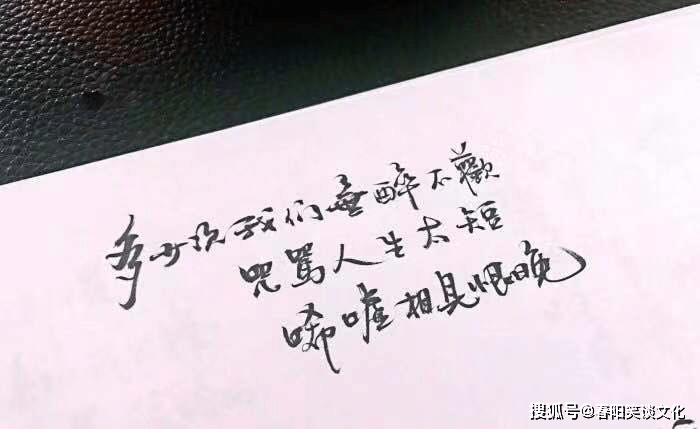 多少次我们无醉不歡
咒骂人生太短
唏嘘相見恨晚
搜狐号@春阳笑谈文化